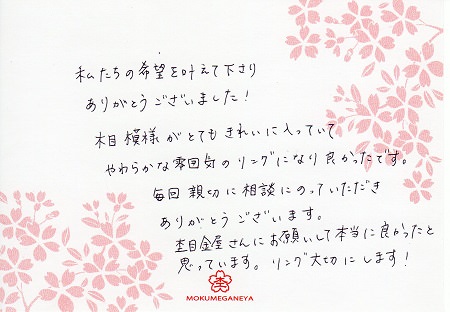 私たちの希望を叶えて下さり
ありがとうございました!
木目模様がとてもきれいに入っていて
やわらかな雰囲気のリングになり良かったです。
毎回親切に相談にのっていただき
ありがとうございます。
杢目金屋さんにお願いして本当に良かったと
思っています。リング大切にします!
杢
MOKUMEGANEYA